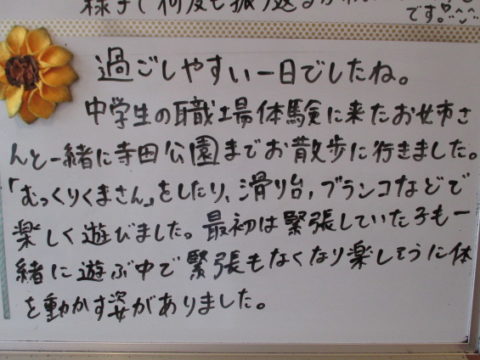 様子で何度も振り返るかわいい
です。
過ごしやすい一日でしたね。
中学生の職場体験に来たお姉さ
んと一緒に寺田公園までお散歩に行きました。
「むっくりくまさん」をしたり、滑り台、ブランコなどで
楽しく遊びました。最初は緊張していた子も一
緒に遊ぶ中で緊張もなくなり楽しそうに体
を動かす姿がありました。